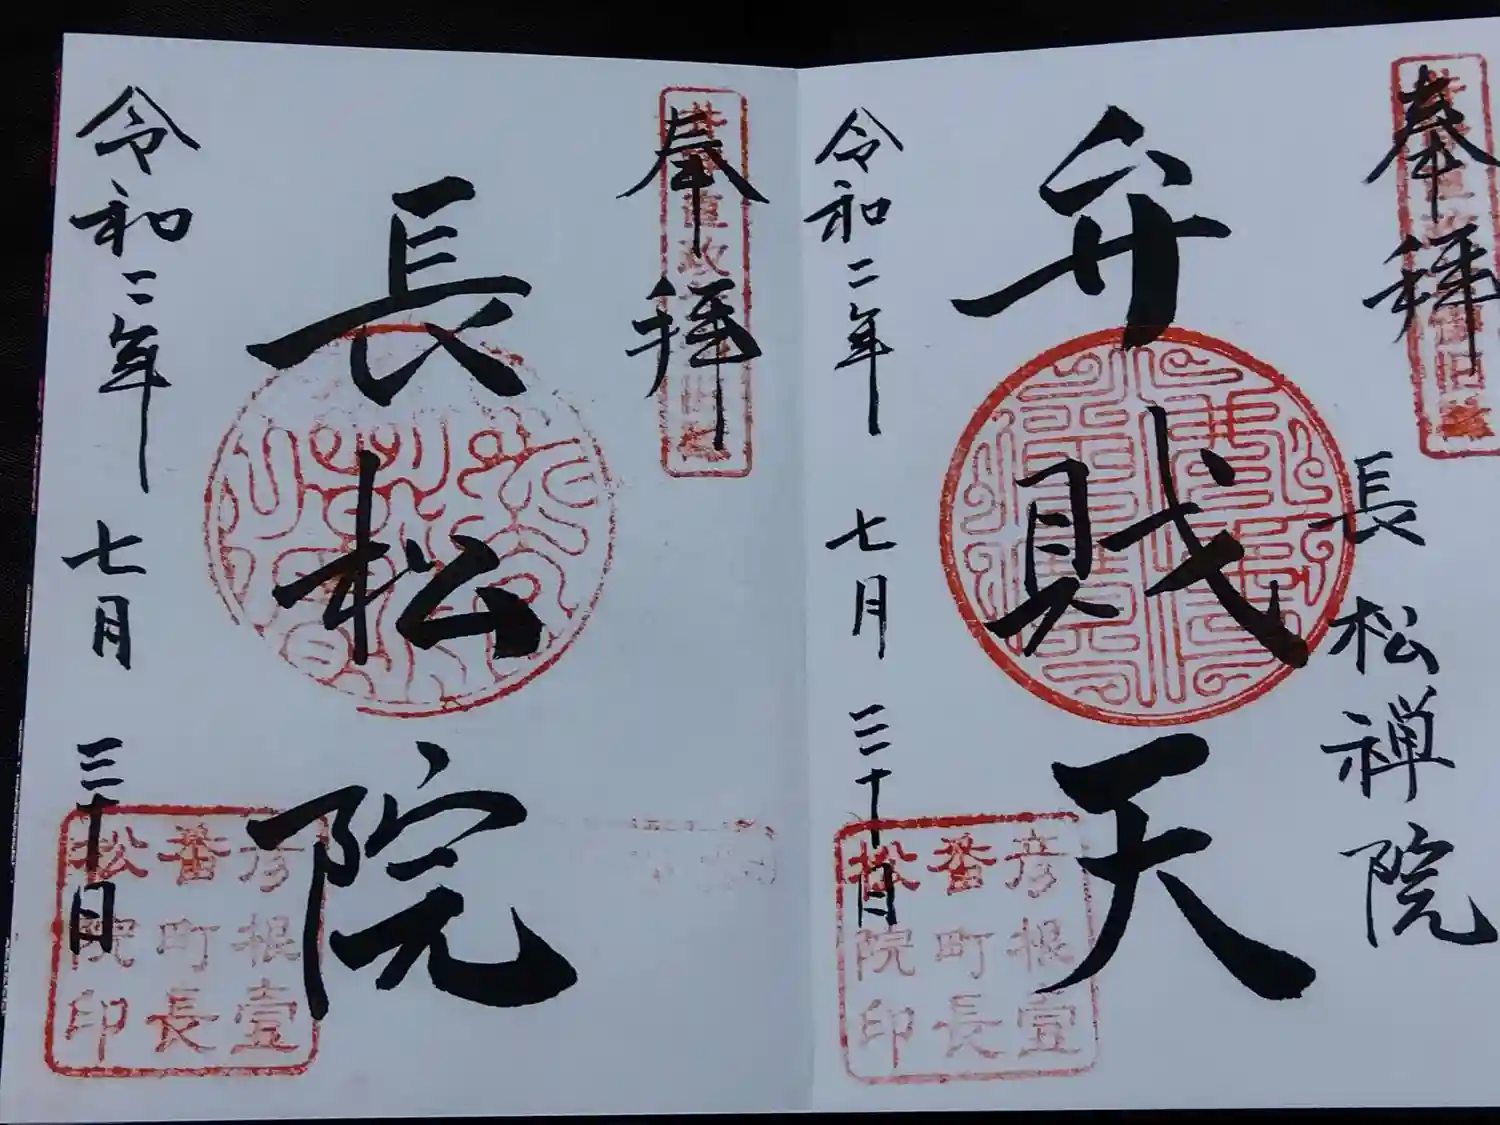 奉拝
長松禅院
弁戝天
令和二年 七月 三十日
彦根壹
番町長
松院印
奉拝
長松院
令和二年 七月 三十日
彦根壹
番町長
松院印